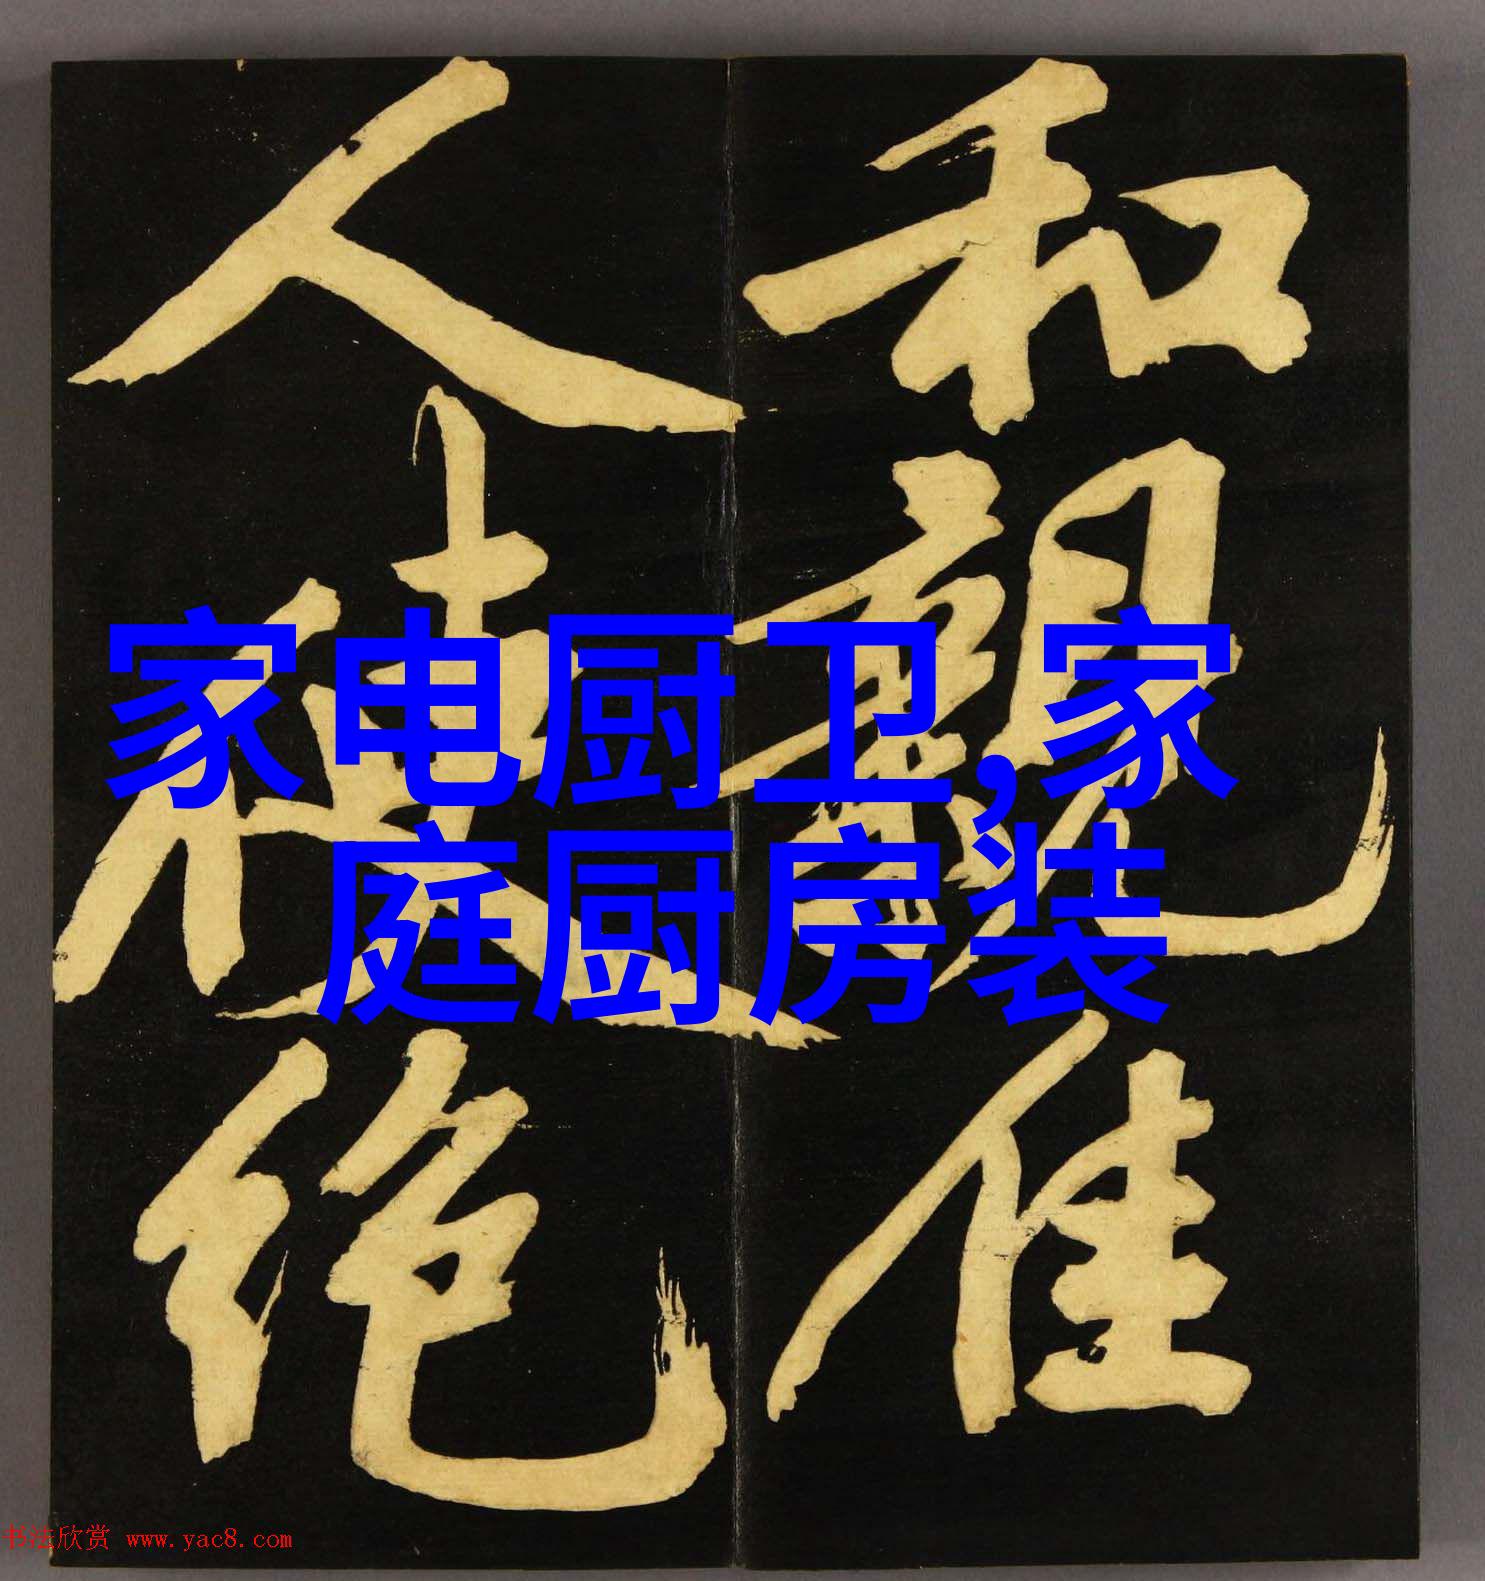 和親佳
人
絶
家电厨卫,家
庭厨房装
书法欣赏 www.yac8.com